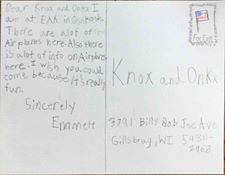 Dear Knox and Onka I
am at EAA in Oshkosh.
There are alot of
Airplanes here. Also there
is alot of info on Airplanes
here. I wish you could
come because it's really
fun.
Sincerely
Emmett
Knox and Onka
3791 Billy Bob Joe Ave
Gillsbray, WI 54311-
2968